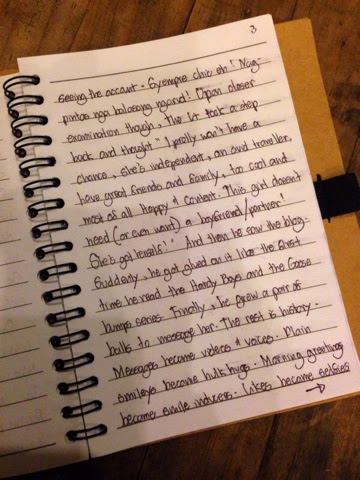 3
seeing the account. Syempre chix eh! Nag-
pintas nga balasang ngarud! Upon closer
examination though, the
back and thought "I prolly won't have a
chance, she's independent, an avid traveller,
have great friends and family, too cool and
most of all Happy & Content. This girl doesn't
need (or even want) a boyfriend/partner!
She's got herself!" And then he saw the blog.
Suddenly, he got glued on it like the first
time he read the Hardy Boys and the Goose
bumps series. Finally, he grew a pair of
balls to message her. The rest is history.
Messages became videos & voices. Plain
smileys became hulk hugs. Morning greetings
became smile inducers. Likes became selfies
→